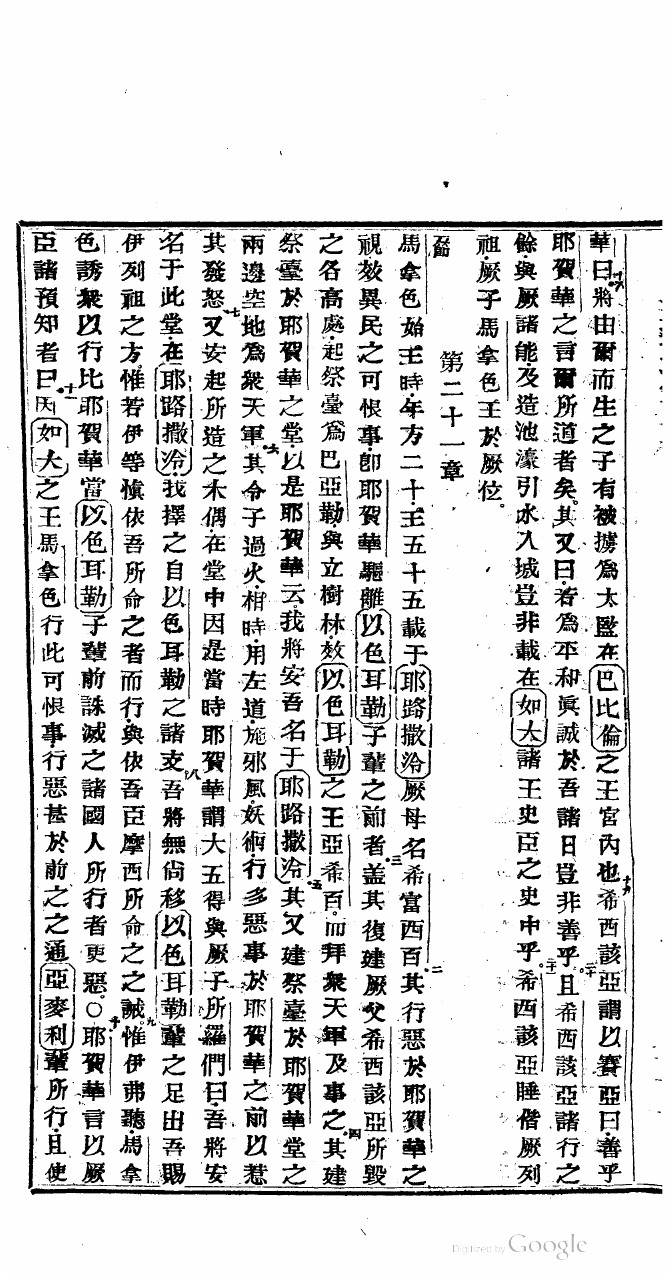 華曰將由爾而生之子有被擄爲太監在巴比倫之王宮內也希西該亞謂以賽亞曰善乎
耶賀華之言爾所道者矣其又曰若爲平和眞誠於吾諸日豈非善乎且希西該亞諸行之
餘與厥諸能及造池濠引水入城豈非載在如大諸王史臣之史中乎希西該亞睡偕厥列
祖厥子馬拿色王於厥位
第二十一章
馬拿色始王時年方二十王五十五載于耶路撒冷厥母名希富西百其行惡於耶賀華之
視效異民之可恨事卽耶賀華驅離以色耳勒子輩之前者盖其復建厥父希西該亞所毀
之各高處起祭臺爲巴亞勒與立樹林效以色耳勒之王亞希百而拜衆天軍及事之其建
祭臺於耶賀華之堂以是耶賀華云我將安吾名于耶路撒冷其又建祭臺於耶賀華堂之
兩邊空地爲衆天軍其令子過火相時用左道施邪風妖術行多惡事於耶賀華之前以惹
其發怒又安起所造之木偶在堂中因是當時耶賀華謂大五得與厥子所羅們曰吾將安
名于此堂在耶路撒冷我擇之自以色耳勒之諸支吾將無尙移以色耳勒輩之足出吾賜
伊列祖之方惟若伊等愼依吾所命之者而行與依吾臣摩西所命之之誡惟伊弗聽馬拿
色誘衆以行比耶賀華當以色耳勒子輩前誅滅之諸國人所行者更惡〇耶賀華言以厥
臣諸預知者曰因如大之王馬拿色行此可恨事行惡甚於前之之通亞麥利輩所行且使
Digitized by Google